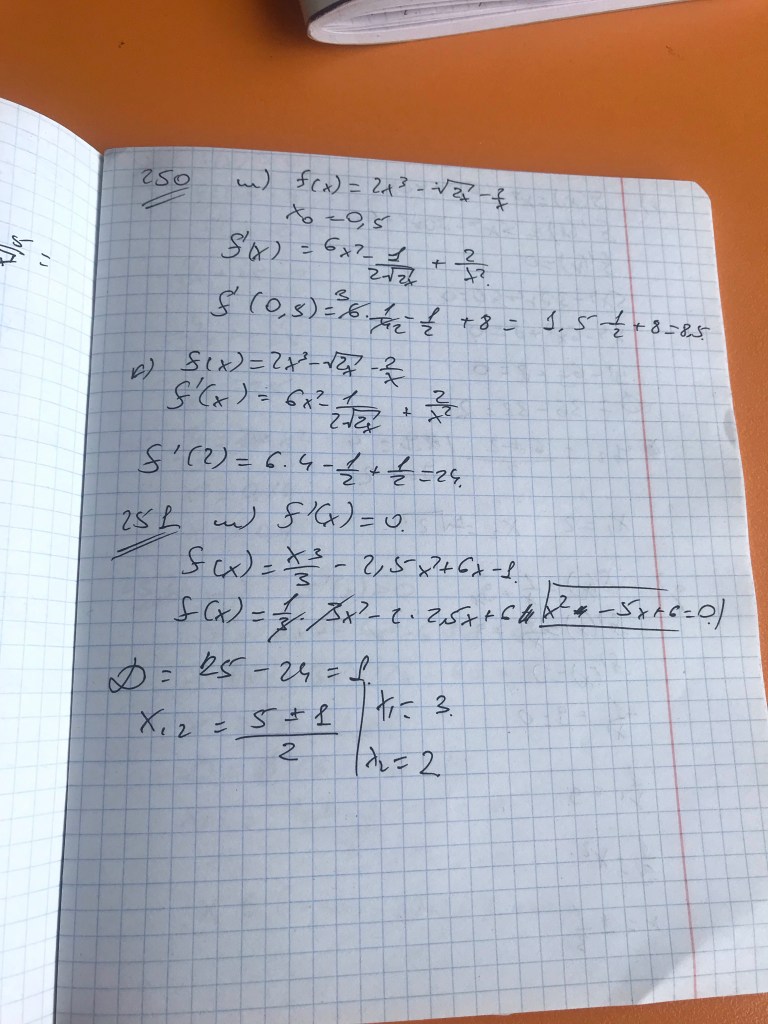 250 m) f(x) = 2x³ - √2x - 2/x
x₀ = 0,5
f'(x) = 6x² - 1/(2√2x) + 2/x².
f'(0,5) = 6 · 1/4 - 1/2 + 8 = 1,5 - 1/2 + 8 = 8,5.
f(x) = 2x³ - √2x - 2/x
f'(x) = 6x² - 1/(2√2x) + 2/x²
f'(2) = 6 · 4 - 1/2 + 1/2 = 24.
251 m) f'(x) = 0.
f(x) = x³/3 - 2,5x² + 6x - 1.
f(x) = 1/3 · 3x² - 2 · 2,5x + 6 x² - 5x + 6 = 0
D = 25 - 24 = 1.
x₁,₂ = (5 ± 1)/2 | x₁ = 3.
x₂ = 2